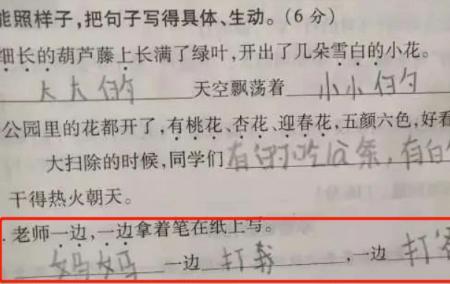 能照样子,把句子写得具体、生动。(6分)
细长的葫芦藤上长满了绿叶,开出了几朵雪白的小花。
大大的 天空飘荡着 小小的
公园里的花都开了,有桃花、杏花、迎春花,五颜六色,好看
大扫除的时候,同学们 有的 吃 条,有的
干得热火朝天。
.老师一边,一边拿着笔在纸上写。
妈妈 一边 打我 ,一边 打